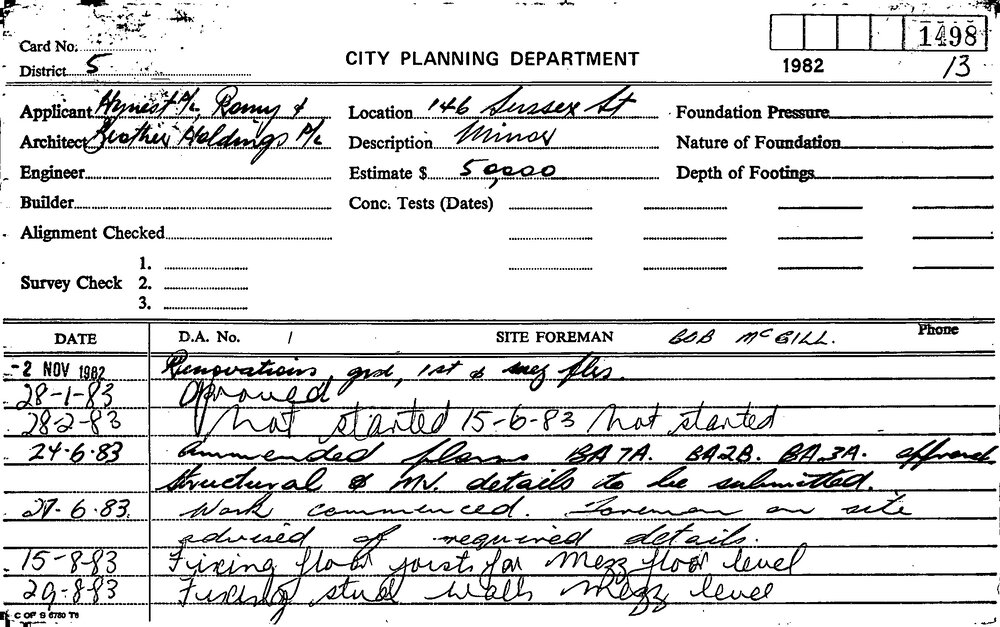 1498
Card No.
CITY PLANNING DEPARTMENT
District 5
1982
13
Applicant Hymest P/L, Remy &
Location 146 Sussex St
Foundation Pressure
Architect Brother Holdings P/L
Description Minor
Nature of Foundation
Engineer
Estimate $ 50,000
Depth of Footings
Builder
Conc. Tests (Dates)
Alignment Checked
1.
Survey Check 2.
3.
DATE D.A. No. / SITE FOREMAN BOB McGILL. Phone
-2 NOV 1982 Renovations, grd, 1st & mez flrs.
28-1-83 Aproved
28-2-83 Not started 15-6-83 Not started
24-6-83 Ammended plans BA7A. BA2B. BA3A.
structural & MV. details to be submitted.
27-6-83. Work commenced. Foreman on site
advised of required details.
15-8-83 Fixing floor joists for Mezz floor level
29-8-83 Fixing stud walls Mezz level
C OF S 6780 T6